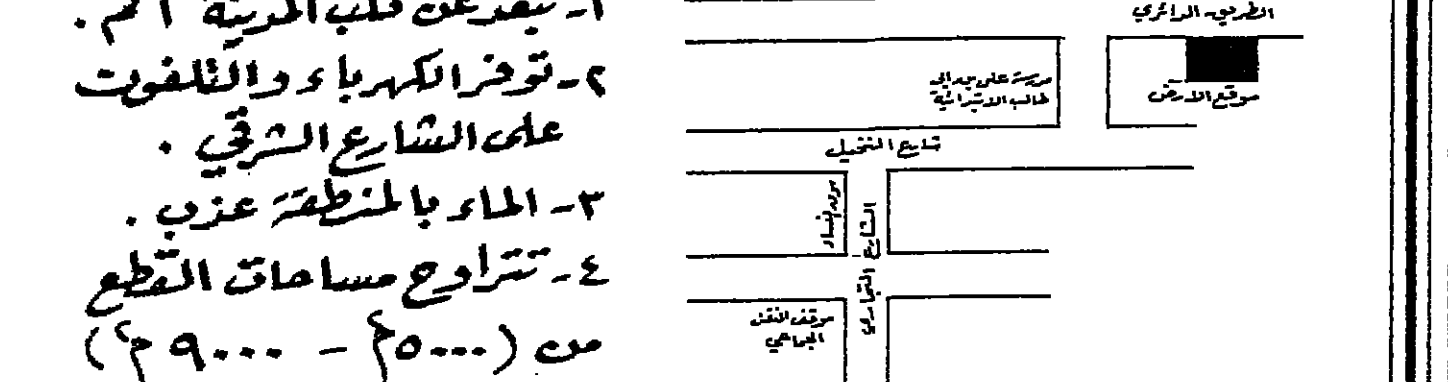 ١- تبعد عن قلب المدينة ٢ كم .
٢- توفر الكهرباء والتلفون
على الشارع الشرقي .
٣- الماء بالمنطقة عذب .
٤- تتراوح مساحات القطع
من (٥٠٠٠م٢ - ٩٠٠٠م٢)
الطريق الدائري
مدرسة علي بن أبي
طالب الابتدائية
موقع الأرض
شارع النخيل
الشارع التجاري
موقف النقل
الجماعي